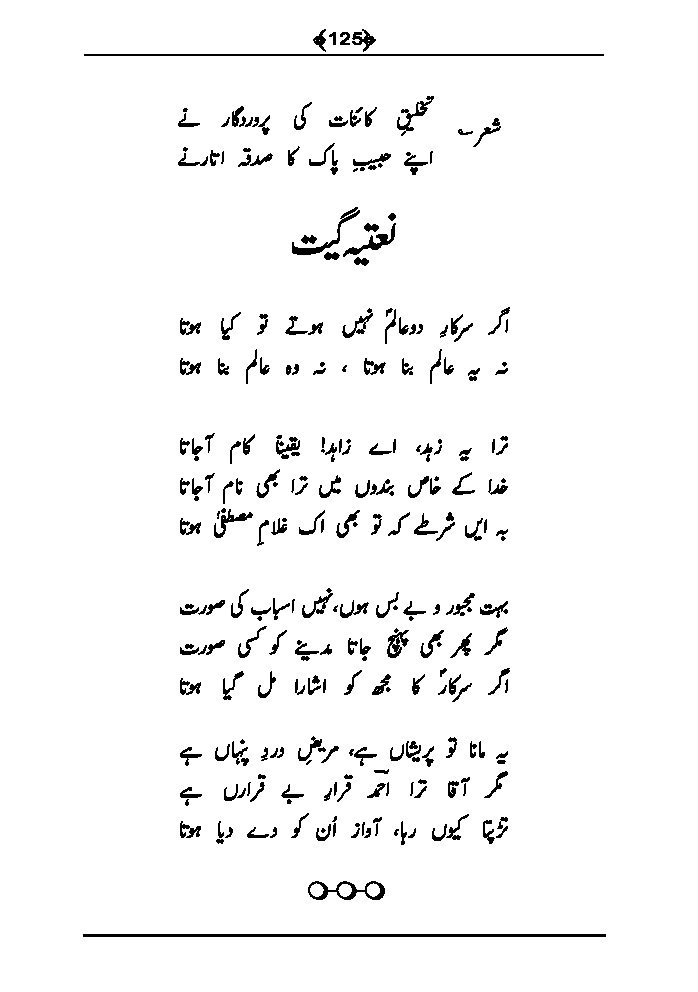 125
شعر؎ تخلیقِ کائنات کی پروردگار نے
اپنے حبیبِ پاک کا صدقہ اتارنے
نعتیہ گیت
اگر سرکارِ دوعالمؐ نہیں ہوتے تو کیا ہوتا
نہ یہ عالم بنا ہوتا ، نہ وہ عالم بنا ہوتا
ترا یہ زہد، اے زاہد! یقیناً کام آجاتا
خدا کے خاص بندوں میں ترا بھی نام آجاتا
بہ ایں شرطے کہ تو بھی اک غلامِ مصطفیٰؐ ہوتا
بہت مجبور و بے بس ہوں،نہیں اسباب کی صورت
مگر پھر بھی پہنچ جاتا مدینے کو کسی صورت
اگر سرکارؐ کا مجھ کو اشارا مل گیا ہوتا
یہ مانا تو پریشاں ہے، مریضِ دردِ پنہاں ہے
مگر آقا ترا احمدؔ قرارِ بے قراراں ہے
تڑپتا کیوں رہا، آواز اُن کو دے دیا ہوتا